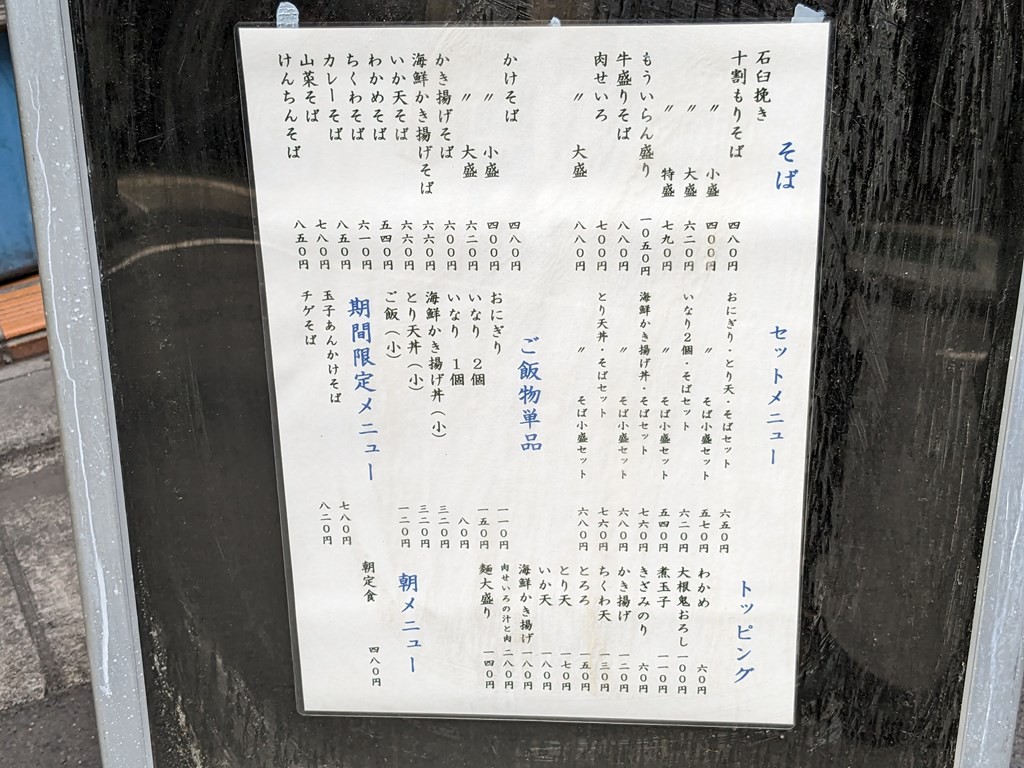 そば
石臼挽き
十割もりそば 四八〇円
〃 小盛 四〇〇円
〃 大盛 六二〇円
〃 特盛 七九〇円
もういらん盛り 一〇五〇円
牛盛りそば 八八〇円
肉せいろ 七〇〇円
〃 大盛 八八〇円
かけそば 四八〇円
〃 小盛 四〇〇円
〃 大盛 六二〇円
かき揚げそば 六〇〇円
海鮮かき揚げそば 六六〇円
いか天そば 六六〇円
わかめそば 五四〇円
ちくわそば 六一〇円
カレーそば 八五〇円
山菜そば 七八〇円
けんちんそば 八五〇円
セットメニュー
おにぎり・とり天・そばセット 六五〇円
〃 そば小盛セット 五七〇円
いなり2個・そばセット 六二〇円
〃 そば小盛セット 五四〇円
海鮮かき揚げ丼・そばセット 七六〇円
〃 そば小盛セット 六八〇円
とり天丼・そばセット 七六〇円
〃 そば小盛セット 六八〇円
ご飯物単品
おにぎり 一一〇円
いなり 2個 一五〇円
いなり 1個 八〇円
海鮮かき揚げ丼(小) 三二〇円
とり天丼(小) 三二〇円
ご飯(小) 一二〇円
期間限定メニュー
玉子あんかけそば 七八〇円
チゲそば 八二〇円
トッピング
わかめ 六〇円
大根鬼おろし 一〇〇円
煮玉子 一一〇円
きざみのり 六〇円
かき揚げ 一二〇円
ちくわ天 一三〇円
とろろ 一五〇円
とり天 一七〇円
いか天 一八〇円
海鮮かき揚げ 一八〇円
肉せいろの汁と肉 二八〇円
麺大盛り 一四〇円
朝メニュー
朝定食 四八〇円